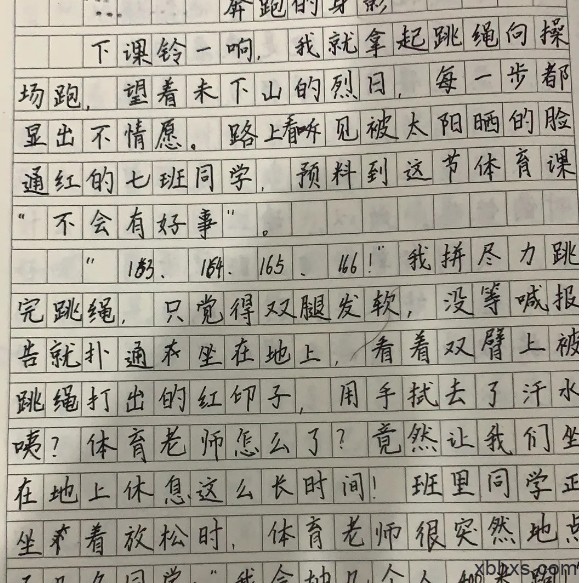 奔跑的身影
下课铃一响，我就拿起跳绳向操
场跑，望着未下山的烈日，每一步都
显出不情愿。路上看见被太阳晒的脸
通红的七班同学，预料到这节体育课
“不会有好事”。
“163、164、165、166！”我拼尽力跳
完跳绳，只觉得双腿发软，没等喊报
告就扑通坐在地上，看着双臂上被
跳绳打出的红印子，用手拭去了汗水
咦？体育老师怎么了？竟然让我们坐
在地上休息这么长时间！班里同学正
坐着放松时，体育老师很突然地点
xbhxs.com